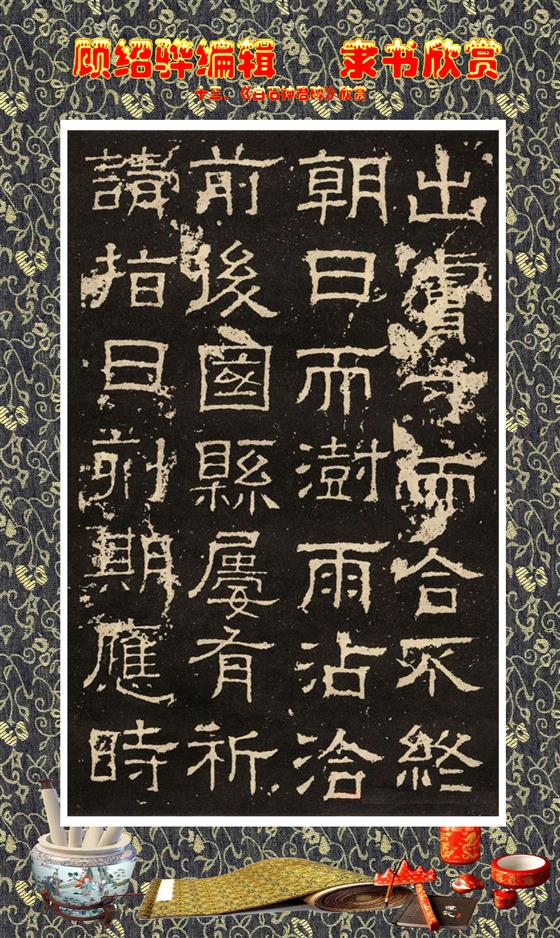 顾绍骅编辑 隶书欣赏
十三、《白石神君碑》欣赏
出膚寸而合不終
朝日而澍雨沾洽
前後國縣屢有祈
請指日刻期應時